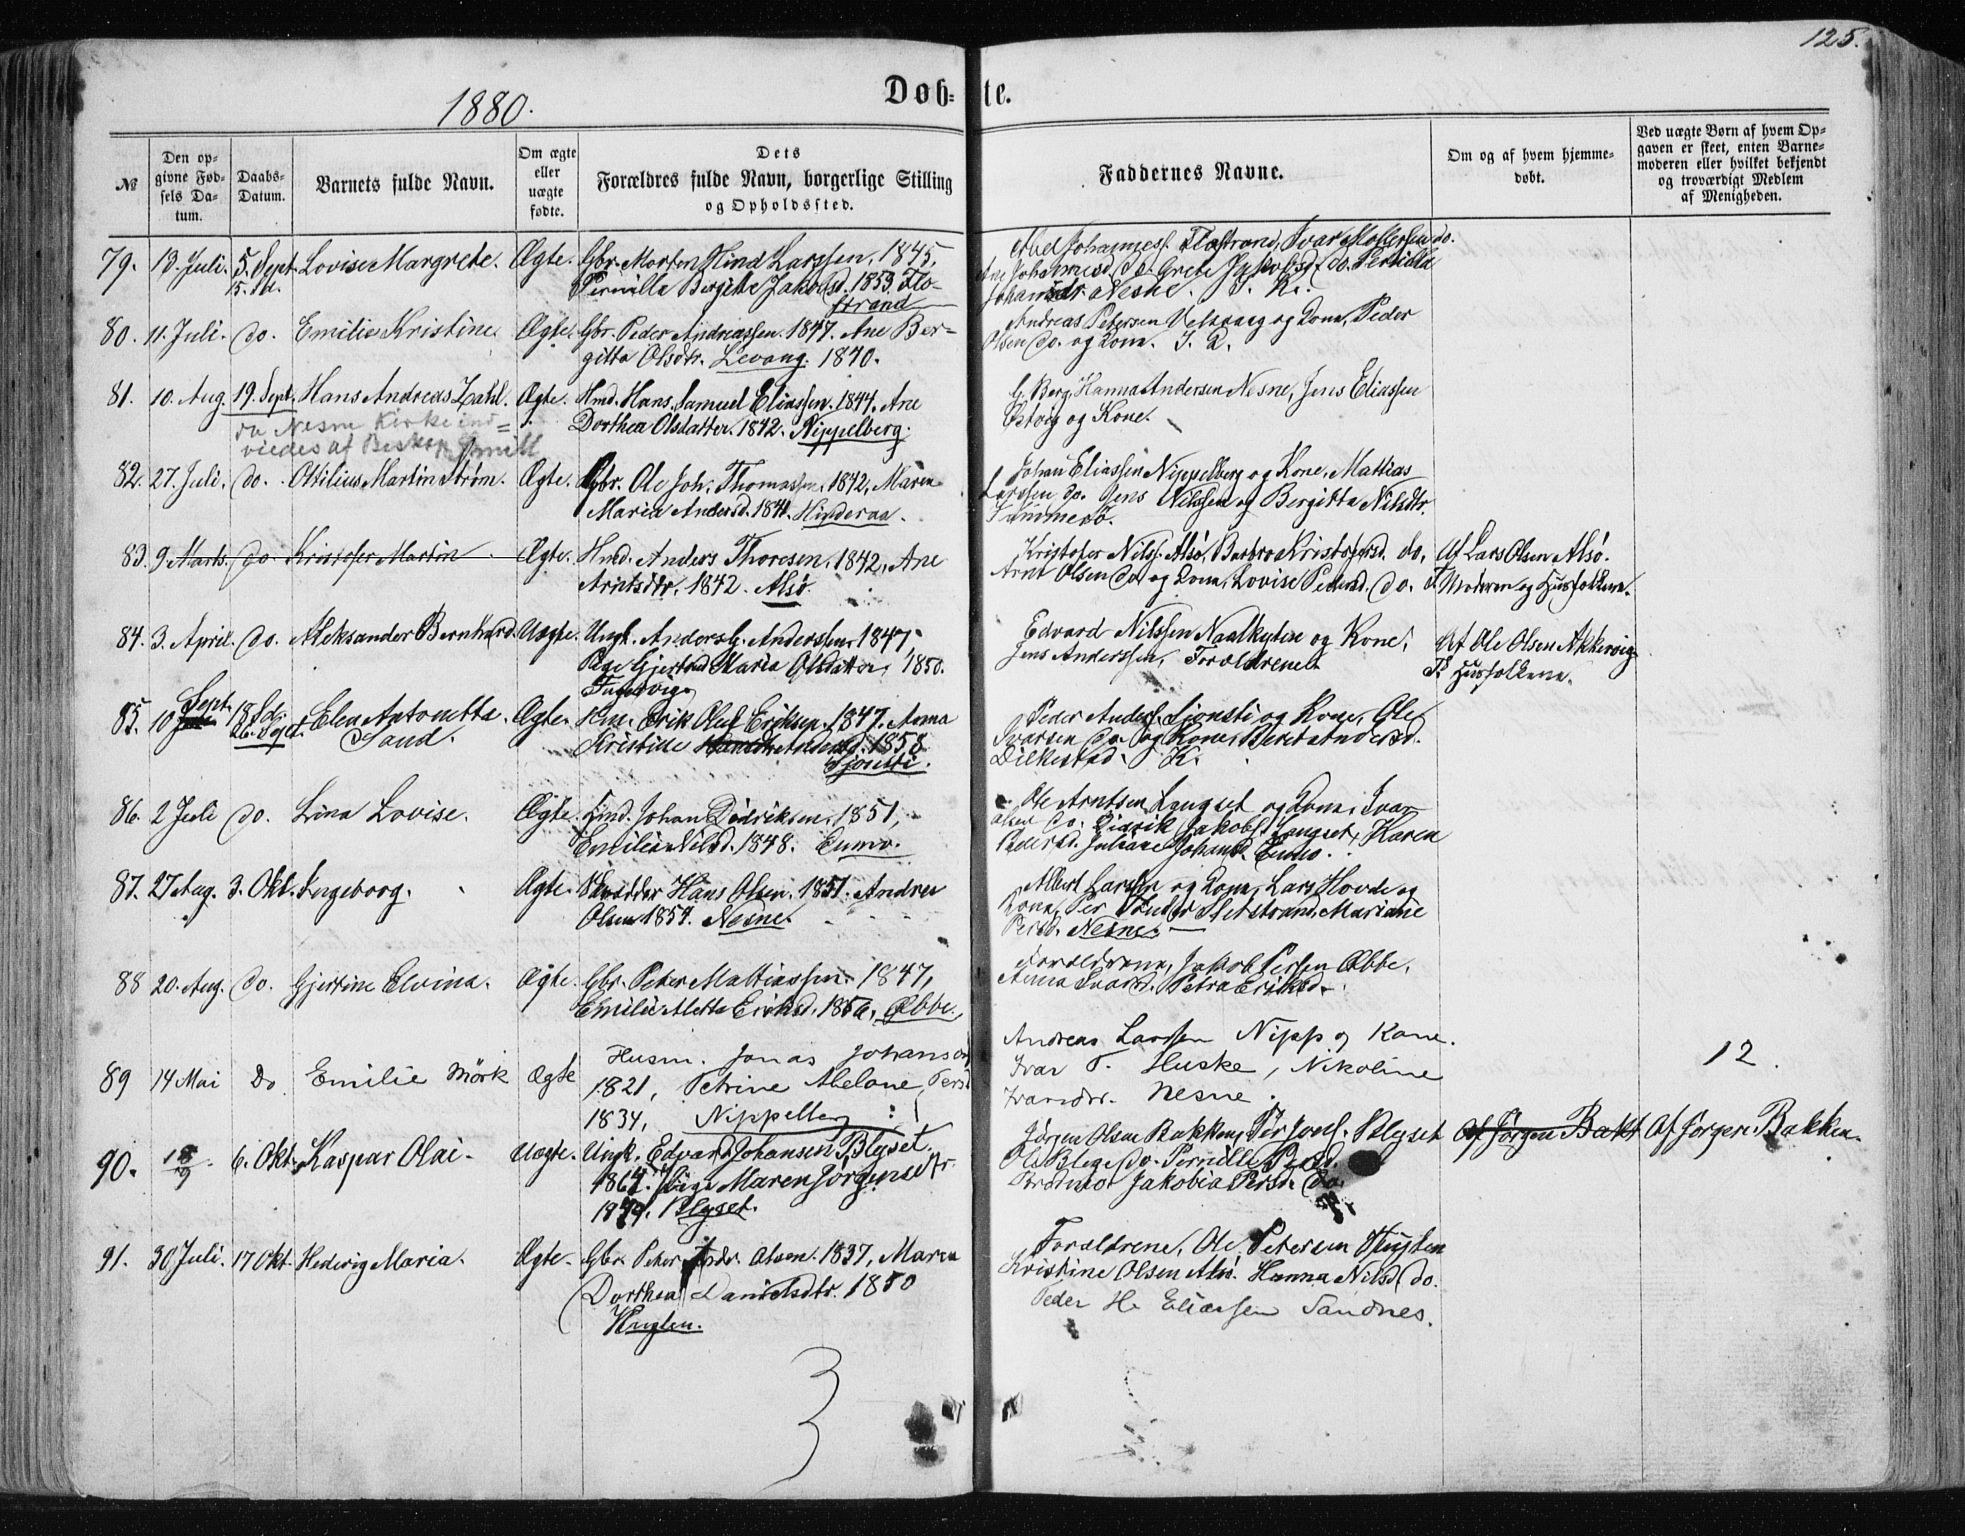 125.
1880.
Døb= te.
№
Den op-
givne Fød-
sels Da-
tum.
Daabs-
Datum.
Barnets fulde Navn.
Om ægte
eller
uægte
fødte.
Dets
Forældres fulde Navn, borgerlige Stilling
og Opholdssted.
Faddernes Navne.
Om og af hvem hjemme-
døbt.
Ved uægte Børn af hvem Op-
gaven er skeet, enten Barne-
moderen eller hvilket bekjendt
og troværdigt Medlem
af Menigheden.
79. 13. Juli. 5. Sept. Lovise Margrete. Ægte. Gbr. Morten Hind Larssen, 1845,
Pernilla Bergitte Jakobsd. 1853. Flo-
strand
Johannesd. do. Grete Jakobsd. do. Pernilla
Nesne.
80. 11. Juli. do. Emilie Kristine. Ægte. Gbr. Peder Andreassen. 1847. Ane Ber-
gitta Olsdtr. Levang. 1840.
Andreas Petersen og Kone, Peder
Olsen do. og Kone.
81. 10. Aug. 19. Sept. Hans Andreas Zahl. Ægte. Hmd. Hans Samuel Eliassen. 1844. Ane
Dorthea Olsdatter. 1842. Nippelberg.
da Nesne Kirke ind=
viedes af Biskop Smitt
G. Berg, Hanna Andersen Nesne, Jens Eliassen
og Kone.
82. 27. Juli. do. Ottilius Martin Strøm. Ægte. Gbr. Ole Joh. Thomassen. 1842, Maren
Maria Andersd. 1841. Hinderaa.
Johan Eliassen Nippelberg og Kone, Mathias
Larssen do. Jens Nilssen og Bergitta Nilsdtr.
83. 9. Marts. do Kristofer Martin Ægte. Hmd. Anders Thoresen, 1842, Ane
Arntsdtr, 1842. Alsø.
Kristofer Nilss. Alsø, Barbro Kristofersd. do,
Arnt Olsen do og Kone, Lovise Pedersd. do.
Af Lars Olsen Alsø.
T. Moderen og Husfolkene.
84. 3. April. do. Aleksander Bernhard. Uægte. Ungk. Anders G. Anderssen, 1847
Pige Gjertrud Maria Olsdatter, 1850.
Edvard Nilssen Naalkyten og Kone,
Jens Anderssen, Forældrene.
Af Ole Olsen Akkervig
T. Husfolkene.
85. 10 Sept. 26. Sept. Elen Antonetta
Sand. Ægte. Hm. Erik Oluf Eriksen. 1847. Anna
Kristine Andersd. 1858
Sjonsti.
Peder Anders. Sjonsti og Kone, Ole
Ivarsen do og Kone, Berit Andersd.
Dilkestad. K.
86. 2 Juli do. Lina Lovise. Ægte. Hmd. Johan Didriksen. 1851,
Emilie Nilsd. 1848. Enmo.
Ole Arntsen Langset og Kone, Ivar
Olsen do. Didrik Jakobs. Langset, Karen
Pedersd. Juliane Johansd. Enmo.
87. 27 Aug. 3. Okt. Ingeborg. Ægte. Skrædder Hans Olsen. 1851. Andrea
Olsen 1854. Nesne.
Albert Larssen og Kone, Lars Hovde og
Kone, Per Mariane
Persd. Nesne.
88 20. Aug. do. Gjertine Elvina. Ægte. Gbr. Peter Mathiassen 1847,
Emilie Aletta Eriksd. 1856, Æbbe.
Forældrene, Jakob Persen Æbbe,
Anna Ivarsd. Petra Eriksd.
89 14 Mai Do Emilie Mörk Ægte Husm. Jonas Johanson
1821, Petrine Abelone, Persd
1834, Nippelberg
Andreas Larssen Nipp og Kone.
Ivar T. Huske, Nikoline
Ivarsdtr. Nesne.
12.
90. 18/9. 6. Okt. Kaspar Olai. Uægte. Ungk. Edvard Johansen Blyset.
1864. Pige Maren Jörgensdtr.
1849. Blyset.
Jørgen Olsen Bakken, Per Joels. Blyset
do. Pernille Persd.
Jakobia Persd. do.
Af Jörgen Bakk
Af Jörgen Bakken.
91. 30 Juli. 17 Okt. Hedevig Maria. Ægte. Gbr. Peter Andr. Olsen. 1837, Maren
Dorthea Danielsdtr. 1850
Huglen.
Forældrene, Ole Petersen Huglen
Kristine Olsen Alsø. Hanna Nilsd. do.
Peder H. Eliassen Sandnes.
3